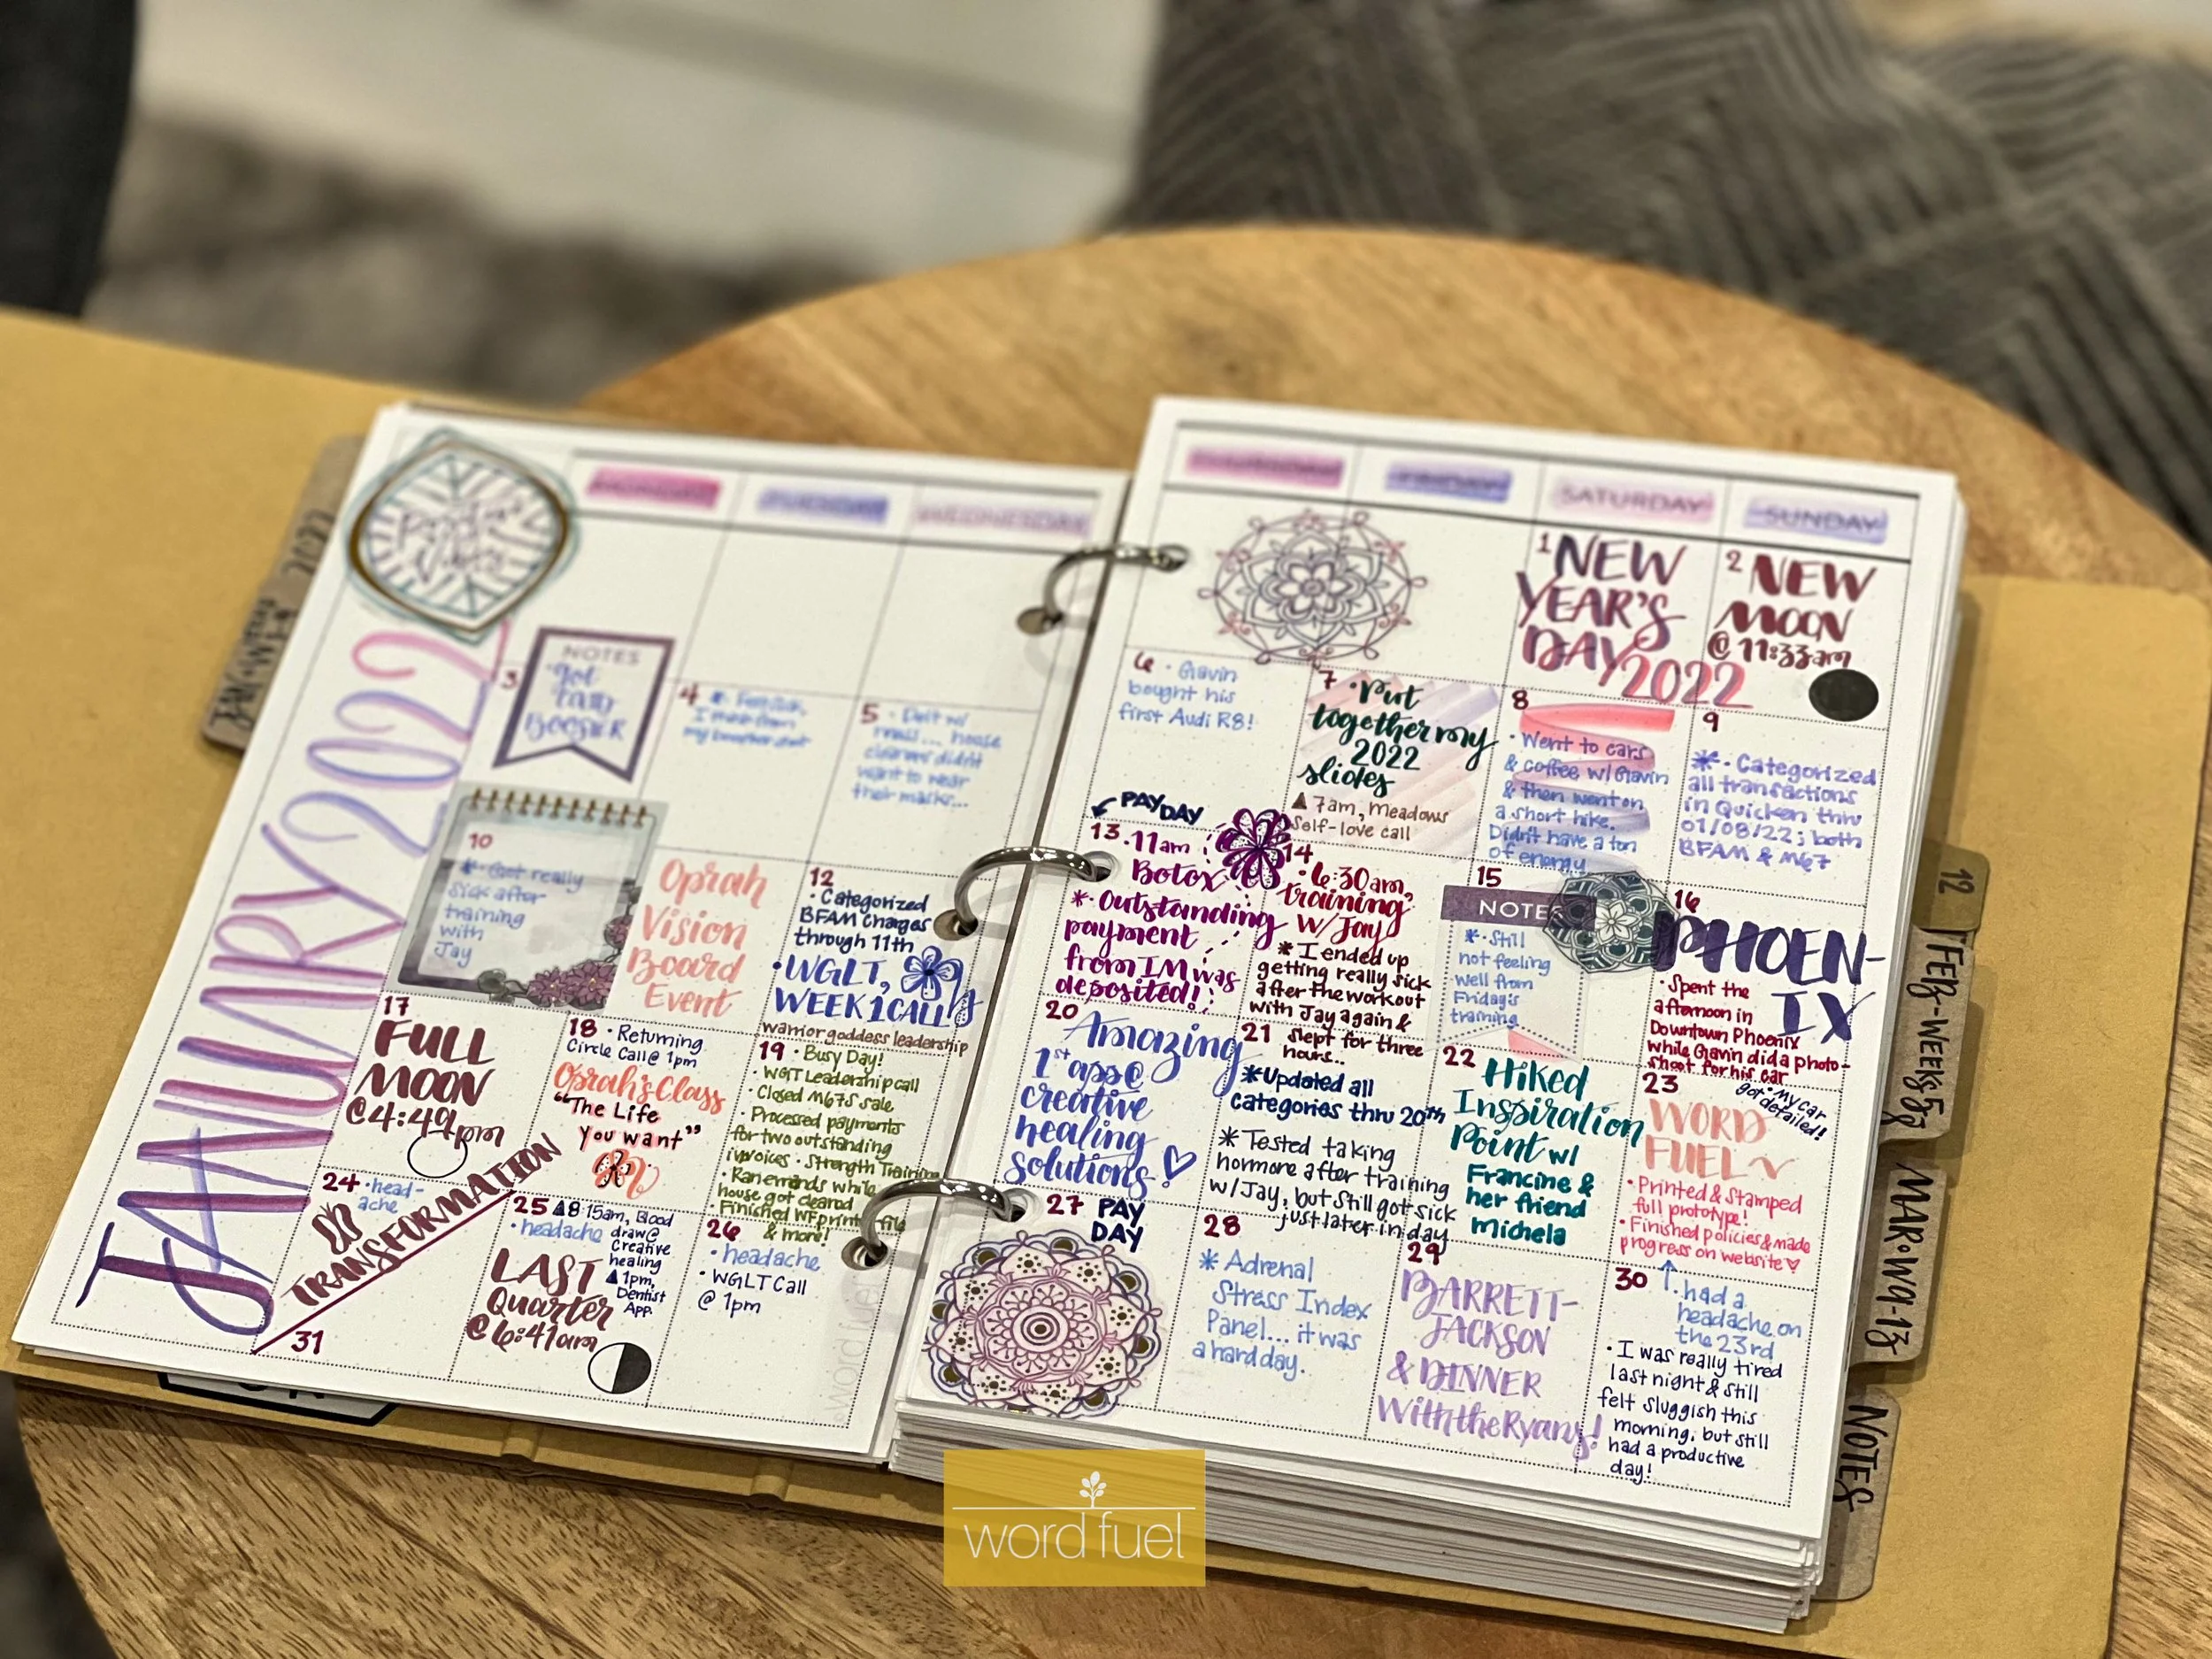 JANUARY 2022
MONDAY
TUESDAY
WEDNESDAY
THURSDAY
FRIDAY
SATURDAY
SUNDAY
1 NEW
YEAR'S
DAY 2022
2 NEW
MOON
@ 11:33am
3
NOTES
got
BOOSTER
4
my booster
5
mall... house
cleaners didn't
want to wear
their masks...
6 • Gavin
bought his
first Audi R8!
7 • Put
together my
2022
slides
▲ 7am, Meadows
Self-love call
8
• Went to cars
& coffee w/ Gavin
& then went on
a short hike.
Didn't have a ton
of energy
9
* • Categorized
all transactions
in Quicken thru
01/08/22; both
BFAM & M67
10
* • Got really
sick after
training
with
Jay
Oprah
Vision
Board
Event
12
• Categorized
BFAM Charges
through 11th
• WGLT,
WEEK 1 CALL
warrior goddess leadership
PAY DAY
13 • 11am
Botox
* • Outstanding
payment
from IM was
deposited!
14
• 6:30am,
training
w/ Jay
* I ended up
getting really sick
after the workout
with Jay again &
slept for three
hours...
15
NOTES
* • Still
not feeling
well from
Friday's
training
16
PHOEN-
IX
• Spent the
afternoon in
Downtown Phoenix
while Gavin did a photo-
shoot for his car
• my car
got detailed!
17
FULL
MOON
@ 4:49pm
18 • Returning
Circle Call @ 1pm
Oprah's Class
"The Life
You want"
19 • Busy Day!
• WGLT Leadership call
• Closed M67S sale
• Processed payments
for two outstanding
invoices • Strength Training
• Ran errands while
house got cleaned
• Finished WF print file
& more!
20
Amazing
1st app @
creative
healing
solutions
21
* Updated all
categories thru 20th
* Tested taking
hormore after training
w/ Jay, but still got sick
just later in day
22
Hiked
Inspiration
Point w/
Francine &
her friend
Michela
23
WORD
FUEL
• Printed & Stamped
full prototype!
• Finished policies & made
progress on website
24 • head-
ache
TRANSFORMATION
31
25 ▲ 8:15am, Blood
draw @
Creative
healing
▲ 1pm,
Dentist
App.
• headache
LAST
Quarter
@ 6:41am
26
• headache
• WGLT Call
@ 1pm
27 PAY
DAY
28
* Adrenal
Stress Index
Panel... it was
a hard day.
29
BARRETT-
JACKSON
& DINNER
With the Ryans!
30
↑ • had a
headache on
the 23rd
• I was really tired
last night & still
felt sluggish this
morning, but still
had a productive
day!
12
FEB-WEEKS 5
MAR•W9-13
NOTES
word fuel
word fuel